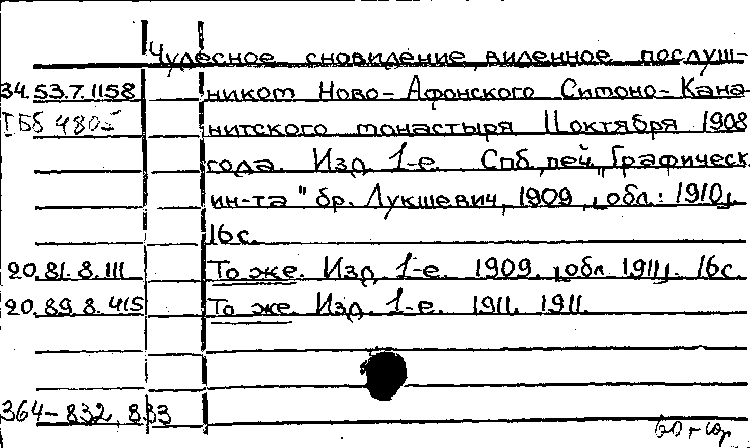 Чудесное сновидение, виденное послуш-
34.53.7.1158 ником Ново-Афонского Симоно-Кана-
ГББ 480 нитского монастыря 11 октября 1908
года. Изд. 1-е. Спб, печ. „Графическ.
ин-та" бр. Лукшевич, 1909, [обл.: 1910].
16 с.
20.81.8.111 То же. Изд. 1-е. 1909. [обл. 1911]. 16 с.
20.89.8.415 То же. Изд. 1-е. 1911. 1911.
364-832, 833